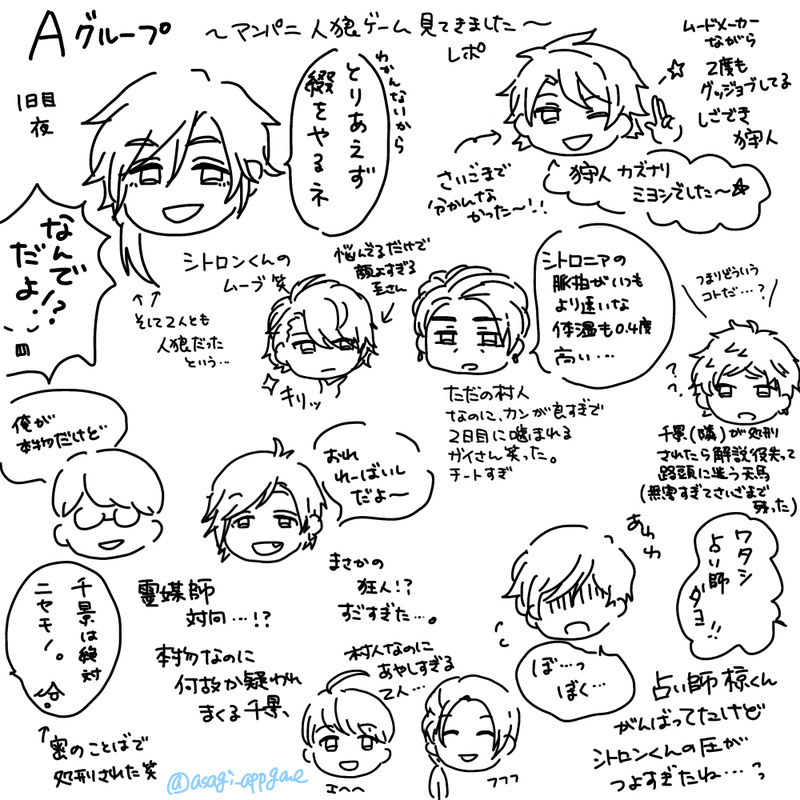 Aグループ
〜アンパニ 人狼ゲーム見てきました〜
レポ
1日目
夜
わかんないから
とりあえず
綴をやるネ
なんで
だよ!?
シトロンくんの
ムーブ笑
↑↑
そして2人とも
人狼だった
という…
ムードメーカー
ながら
2度も
グッジョブしてる
しごでき
狩人
さいごまで
分かんな
かった〜!!
狩人 カズナリ
ミヨシでした〜☆
悩んでるだけで
顔よすぎる
至さん
キリッ
シトロニアの
脈拍がいつも
より速いな
体温も0.4度
高い…
ただの村人
なのに、カンが良すぎで
2日目に噛まれる
ガイさん笑った。
チートすぎ
つまりどういう
コトだ…?
??
千景(隣)が処刑
されたら解説役失って
路頭に迷う天馬
(無害すぎてさいごまで
残った)
俺が
本物だけど
おれ
れーばいし
だよ〜
千景は絶対
ニセモノ。
↑
密のことばで
処刑された笑
霊媒師
対向…!?
本物なのに
何故か疑われ
まくる千景、
まさかの
狂人!?
すごすぎた…。
村人なのに
あやしすぎる
2人…
エへへ
フフフ
あわわ
ワタシ
占い師
ダヨ!!
ぼ…っ
ぼく…
占い師椋くん
がんばってたけど
シトロンくんの圧が
つよすぎたね…?っ
@asagi_appgame